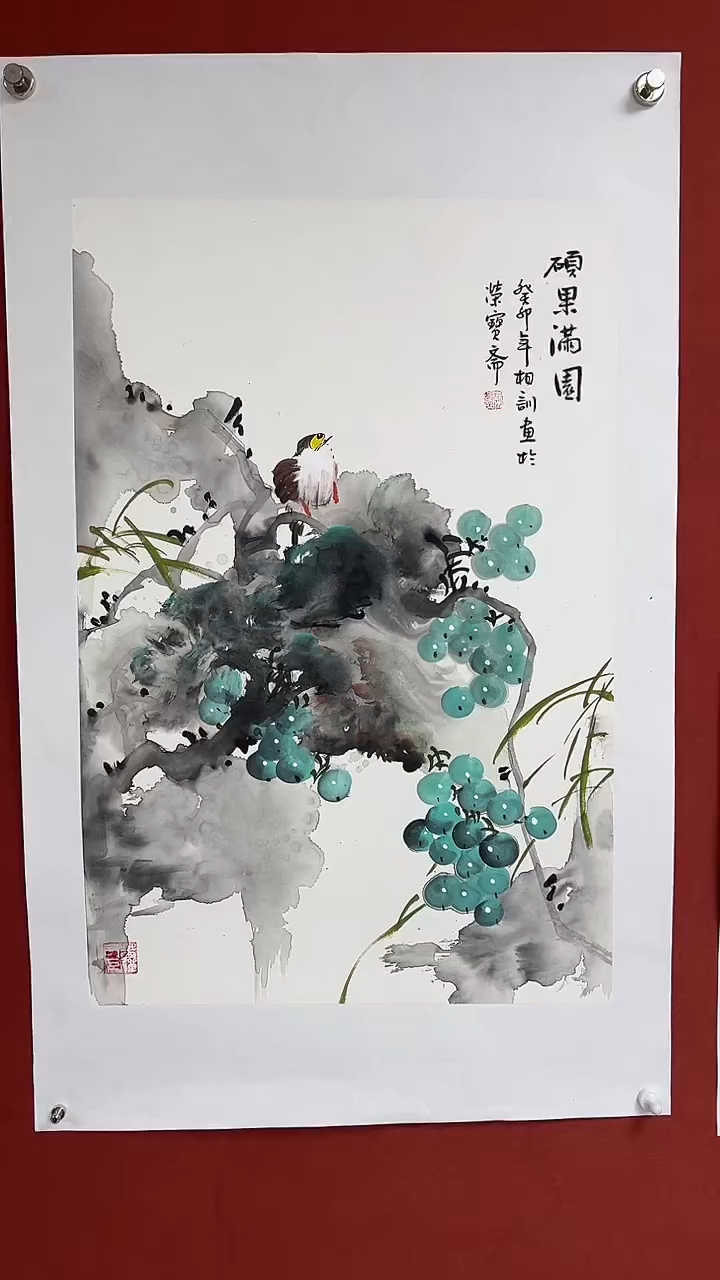 碩果滿園
癸卯年相訓畫於
榮寶斎